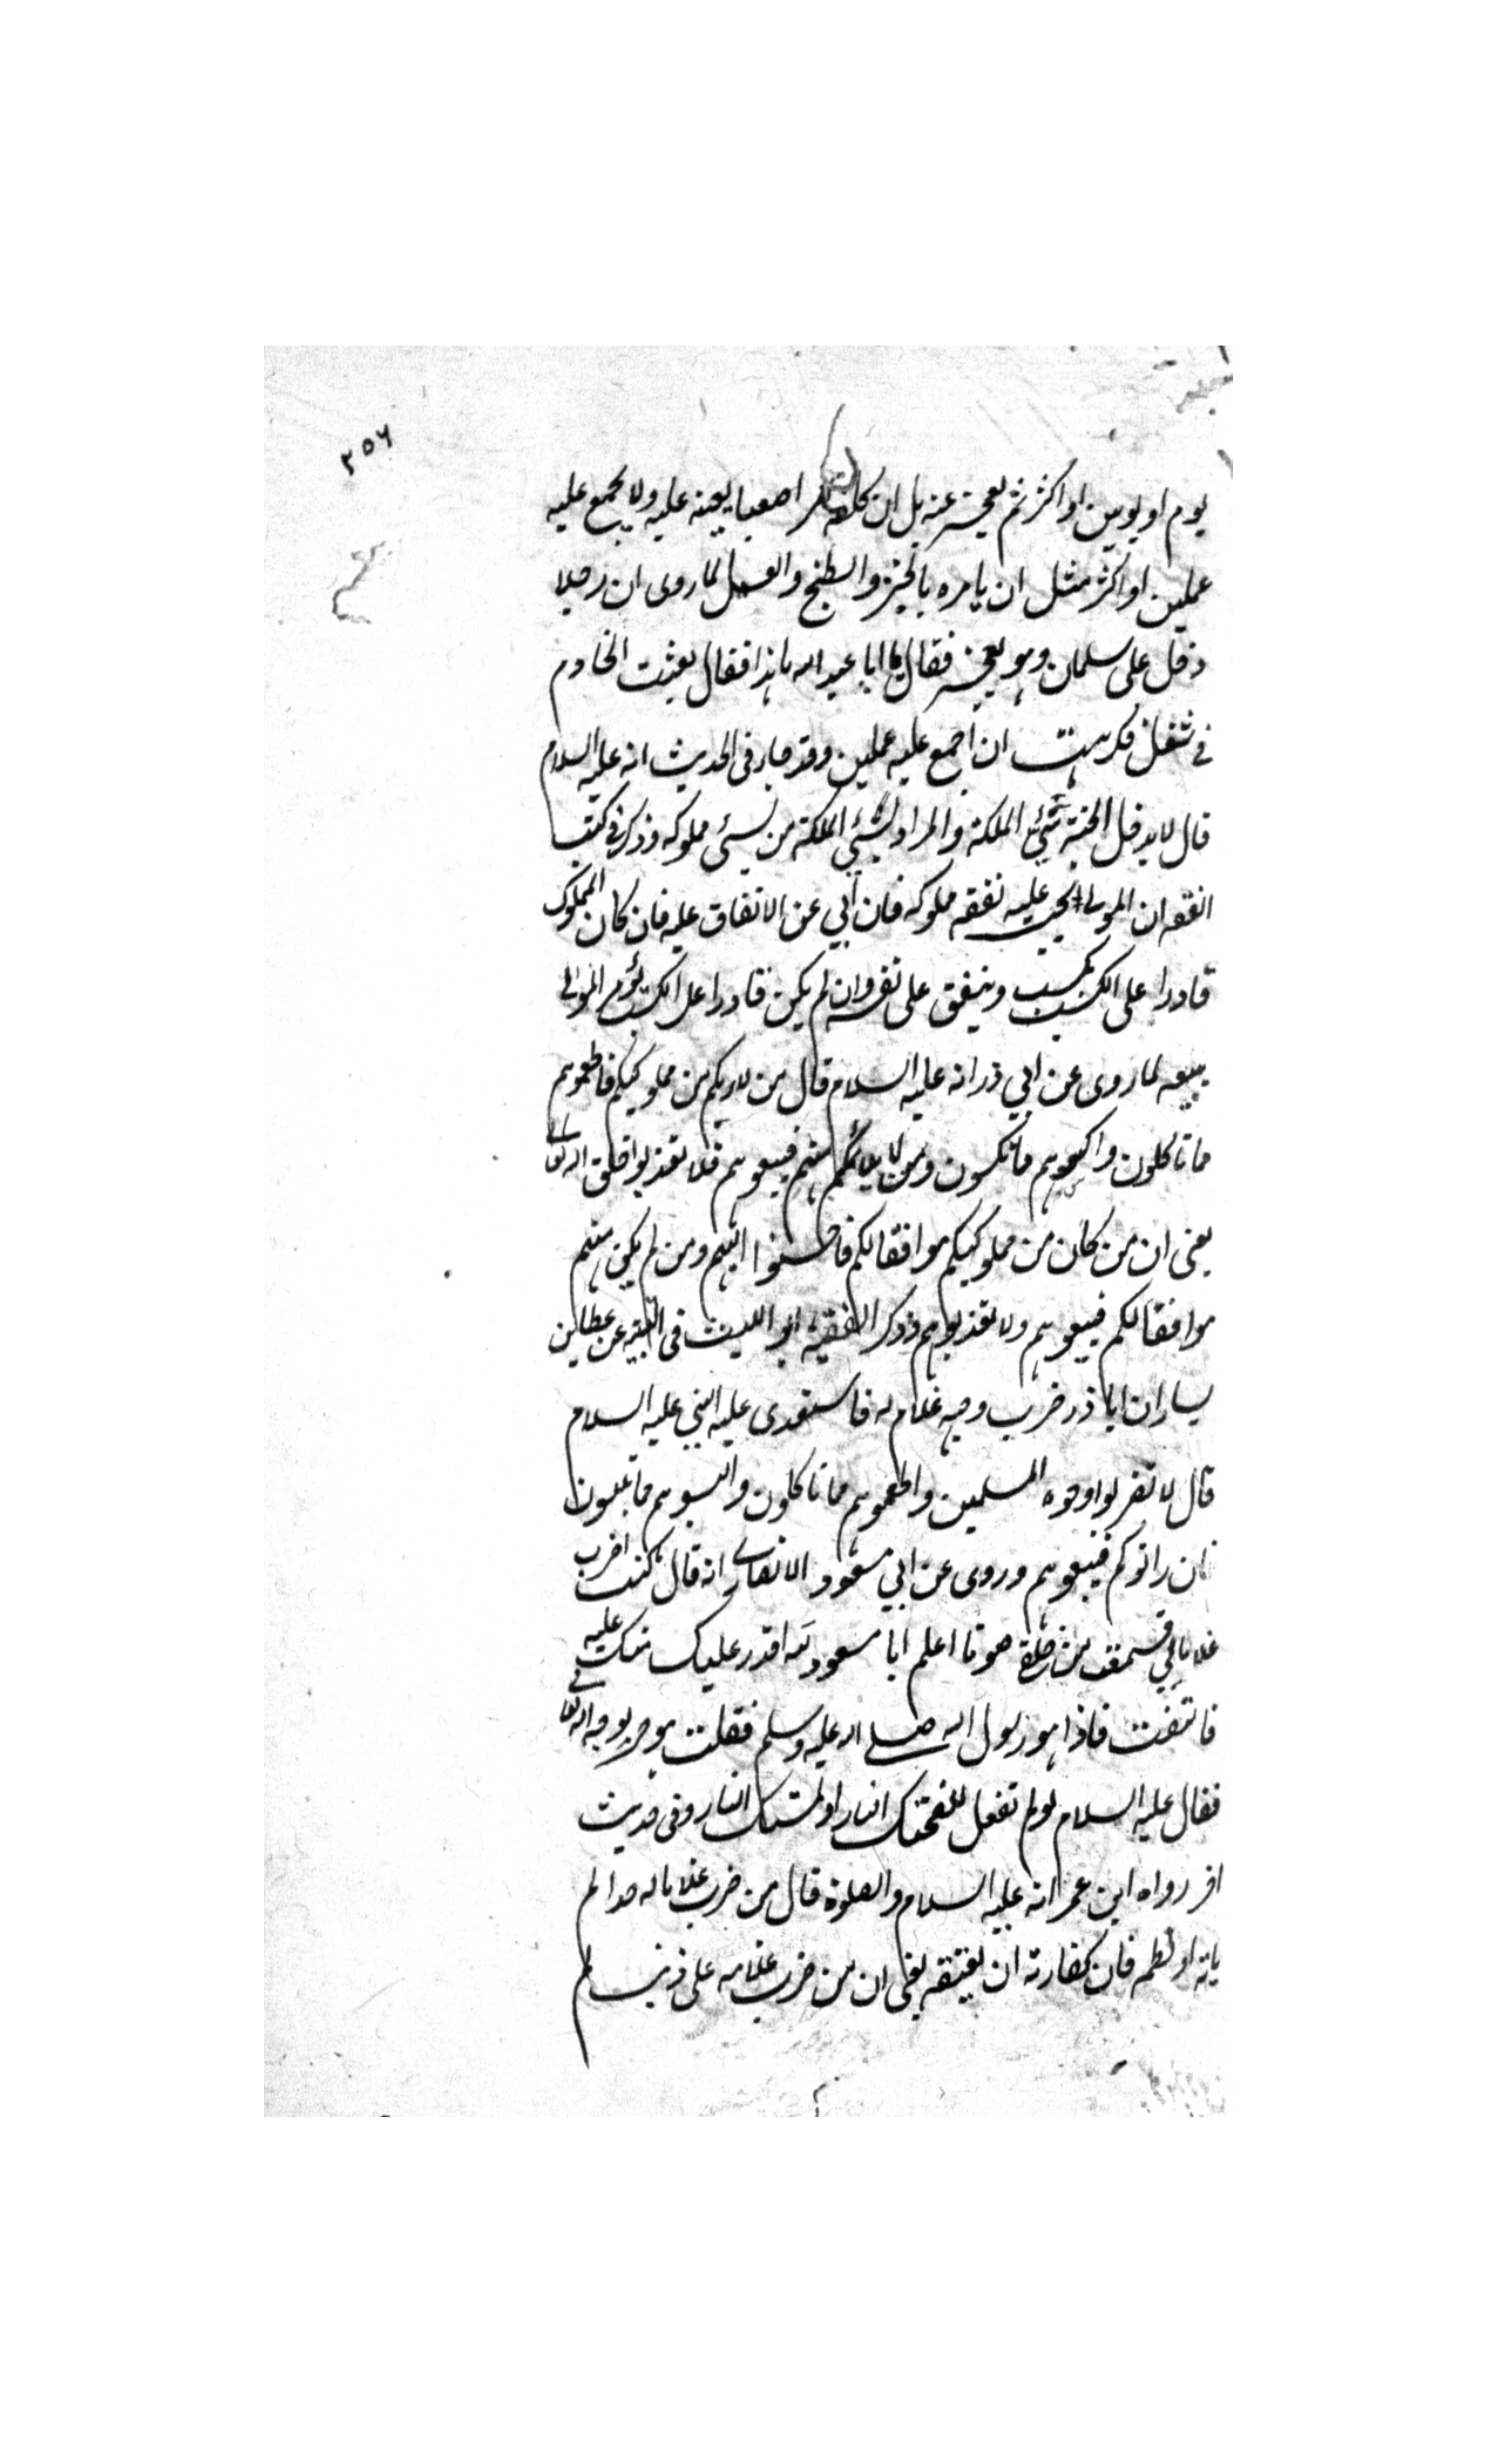 ٢٥٦
يوم او يومين او اكثر ثم يعجز عنه بل ان كلفه امرا صعبا يعينه عليه ولا يجمع عليه
عملين او اكثر مثل ان يامره بالخبز والطبخ والغسل لما روى ان رجلا
دخل على سلمان وهو يعجن فقال يا ابا عبد الله ما هذا فقال بعثت الخادم
في شغل فكرهت ان اجمع عليه عملين وقد جاء فى الحديث انه عليه السلام
قال لا يدخل الجنة سئ الملكة والمراد بسئ الملكة من يسئ مملوكه وذكر فى كتب
الفقه ان المولى يجب عليه نفقه مملوكه فان ابي عن الانفاق عليه فان كان المملوك
قادرا على الكسب يكسب وينفق على نفسه وان لم يكن قادرا على الكسب يؤمر المولى
ببيعه لما روى عن ابي ذر انه عليه السلام قال من لايمكم من مملوكيكم فاطعموهم
مما تاكلون واكسوهم مما تكسون ومن لا يلائمكم منهم فبيعوهم فلا تعذبوا خلق الله تعالى
يعنى ان من كان من مملوكيكم موافقا لكم فاحسنوا اليهم ومن لم يكن منهم
موافقا لكم فبيعوهم ولا تعذبوهم وذكر الفقيه ابو الليث فى التنبيه عن عطا بن
يسار ان ابا ذر ضرب وجه غلام له فاستعدى عليه النبي عليه السلام
قال لا تضربوا وجوه المسلمين واطعموهم مما تاكلون والبسوهم مما تلبسون
فان رابوكم فبيعوهم وروى عن ابي مسعود الانصارى انه قال كنت اضرب
غلاما لي فسمعت من خلفي صوتا اعلم ابا مسعود لله اقدر عليك منك عليه
فالتفت فاذا هو رسول الله صلى الله عليه وسلم فقلت هو حر لوجه الله تعالى
فقال عليه السلام لو لم تفعل للفحتك النار او لمستك النار وفى حديث
اخر رواه ابن عمر انه عليه السلام والصلوة قال من ضرب غلاما له حدا لم
ياته او لطمه فان كفارته ان يعتقه يعنى ان من ضرب غلامه على ذنب لم